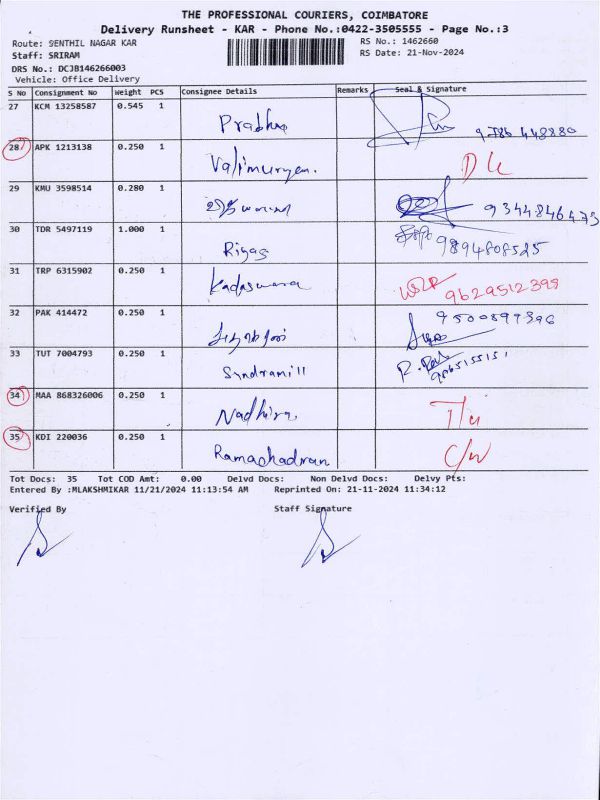 THE PROFESSIONAL COURIERS, COIMBATORE
Delivery Runsheet - KAR - Phone No.:0422-3505555 - Page No.:3
Route: SENTHIL NAGAR KAR
RS No.: 1462660
Staff: SRIRAM
RS Date: 21-Nov-2024
DRS No.: DCJB146266003
Vehicle: Office Delivery
S No Consignment No Weight PCS Consignee Details Remarks Seal & Signature
27 KCM 13258587 0.545 1 Prabhu
28 APK 1213138 0.250 1 Valimurugan. D L
29 KMU 3598514 0.280 1 9344846473
30 TDR 5497119 1.000 1 Riyas 9894808525
31 TRP 6315902 0.250 1 Kadaswara 9629512399
32 PAK 414472 0.250 1 9500897396
33 TUT 7004793 0.250 1 Sundramill
34 MAA 868326006 0.250 1 Nadhira
35 KDI 220036 0.250 1 Ramachadran
Tot Docs: 35 Tot COD Amt: 0.00 Delvd Docs: Non Delvd Docs: Delvy Pts:
Entered By :MLAKSHMIKAR 11/21/2024 11:13:54 AM Reprinted On: 21-11-2024 11:34:12
Verified By Staff Signature